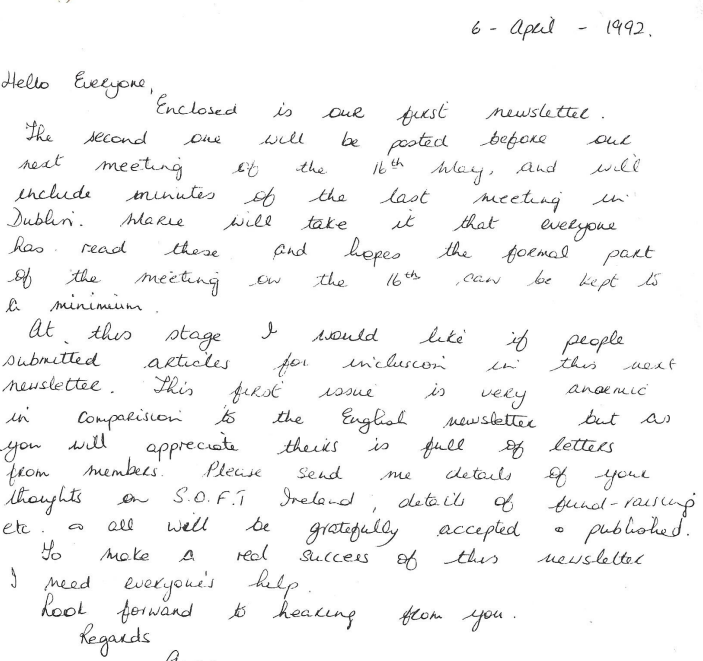 6 - April - 1992.
Hello Everyone,
Enclosed is our first newsletter.
The second one will be posted before our
next meeting of the 16th May, and will
include minutes of the last meeting in
Dublin. Marie will take it that everyone
has read these and hopes the formal part
of the meeting on the 16th can be kept to
a minimum.
At this stage I would like if people
submitted articles for inclusion in this next
newsletter. This first issue is very anaemic
in comparision to the English newsletter but as
you will appreciate theirs is full of letters
from members. Please send me details of your
thoughts on S.O.F.T Ireland, details of fund-raising
etc. all will be gratefully accepted & published.
To make a real success of this newsletter
I need everyone's help.
Look forward to hearing from you.
Regards